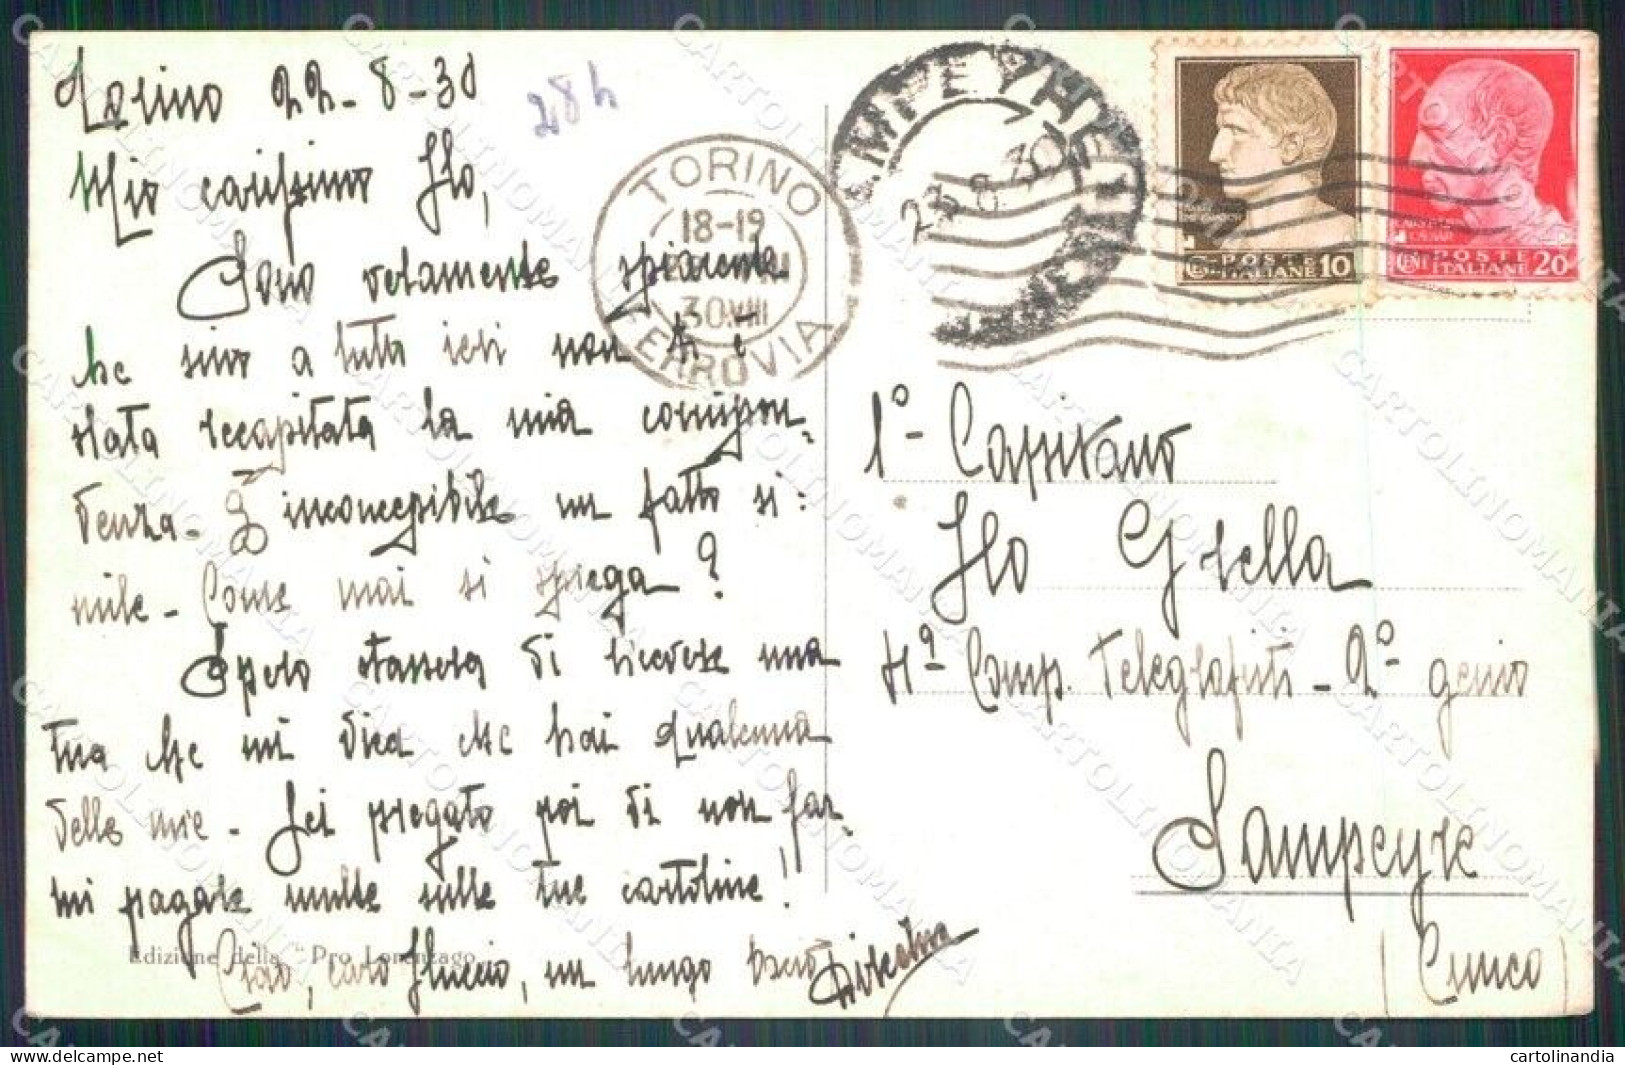 Torino 22-8-30
28 h
Mio carissimo Ilo,
Sono veramente spiacente
che sino a tutto ieri non ti è
stata recapitata la mia corrispon-
denza - È inconcepibile un fatto si-
mile - Come mai si spiega?
Spero stassera di ricevere una
tua che mi dica che hai qualcuna
delle mie - Sei pregato poi di non far-
mi pagare multe sulle tue cartoline!
Ciao, caro Iluccio, un lungo bacio
Edizione della "Pro Lorenzago
TORINO
18-19
30 VIII
FERROVIA
SAMPEYRE
23.8.30
POSTE
ITALIANE 10
POSTE
ITALIANE 20
1° Capitano
Ilo Grella
4ª Comp. Telegrafisti - 2° genio
Sampeyre
(Cuneo)
CARTOLINOMANIA
cartolinandia